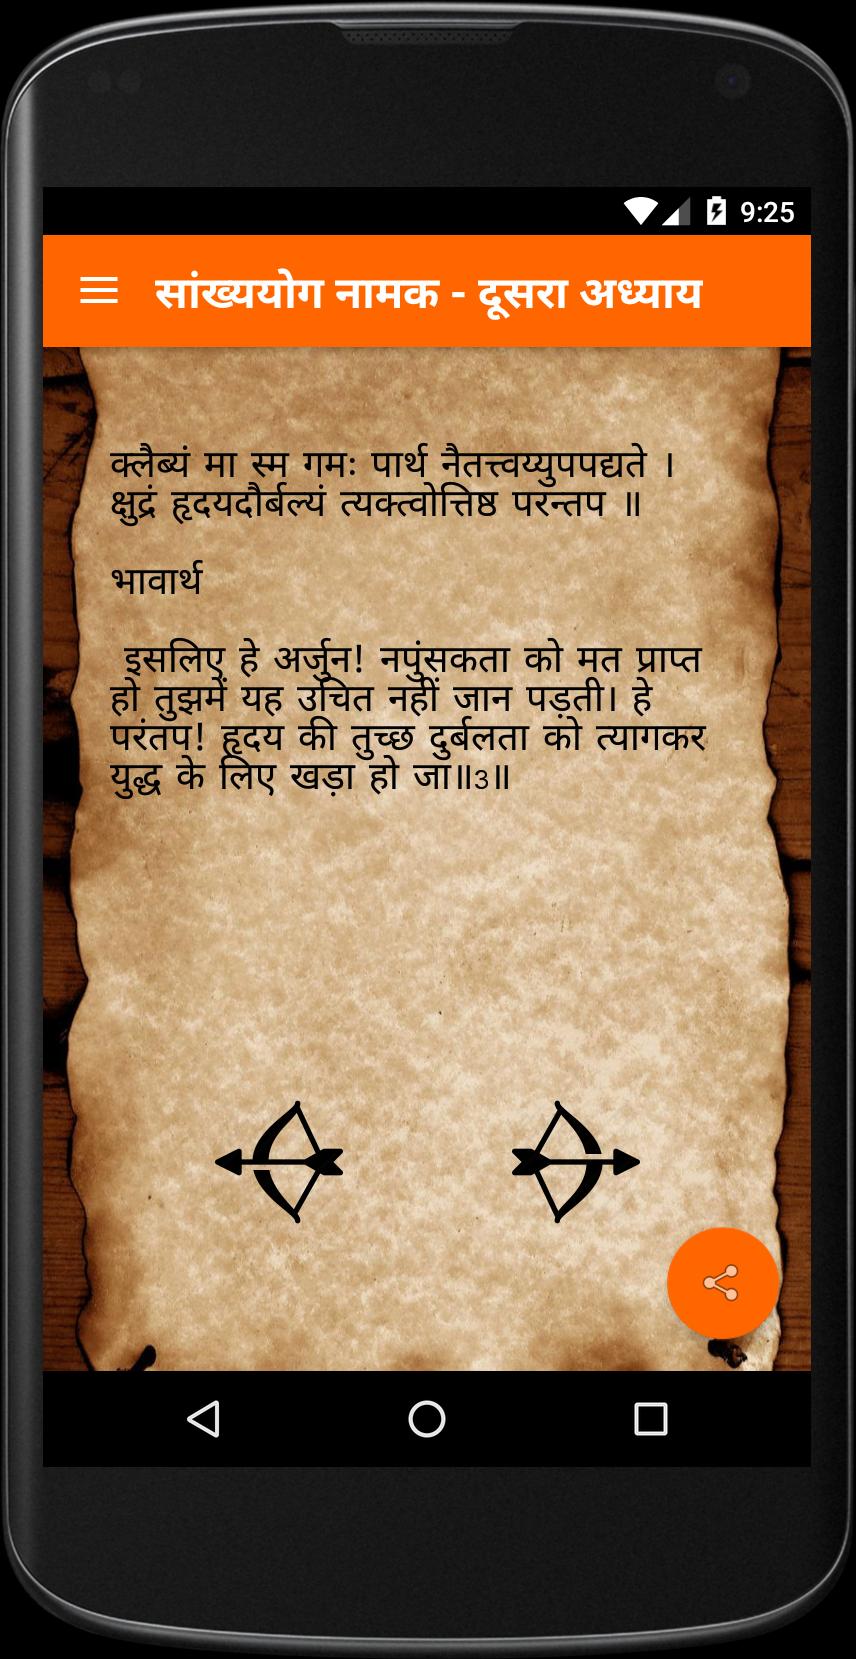 9:25
सांख्ययोग नामक - दूसरा अध्याय
क्लैब्यं मा स्म गमः पार्थ नैतत्त्वय्युपपद्यते ।
क्षुद्रं हृदयदौर्बल्यं त्यक्त्वोत्तिष्ठ परन्तप ॥
भावार्थ
इसलिए हे अर्जुन! नपुंसकता को मत प्राप्त
हो तुझमें यह उचित नहीं जान पड़ती। हे
परंतप! हृदय की तुच्छ दुर्बलता को त्यागकर
युद्ध के लिए खड़ा हो जा॥3॥